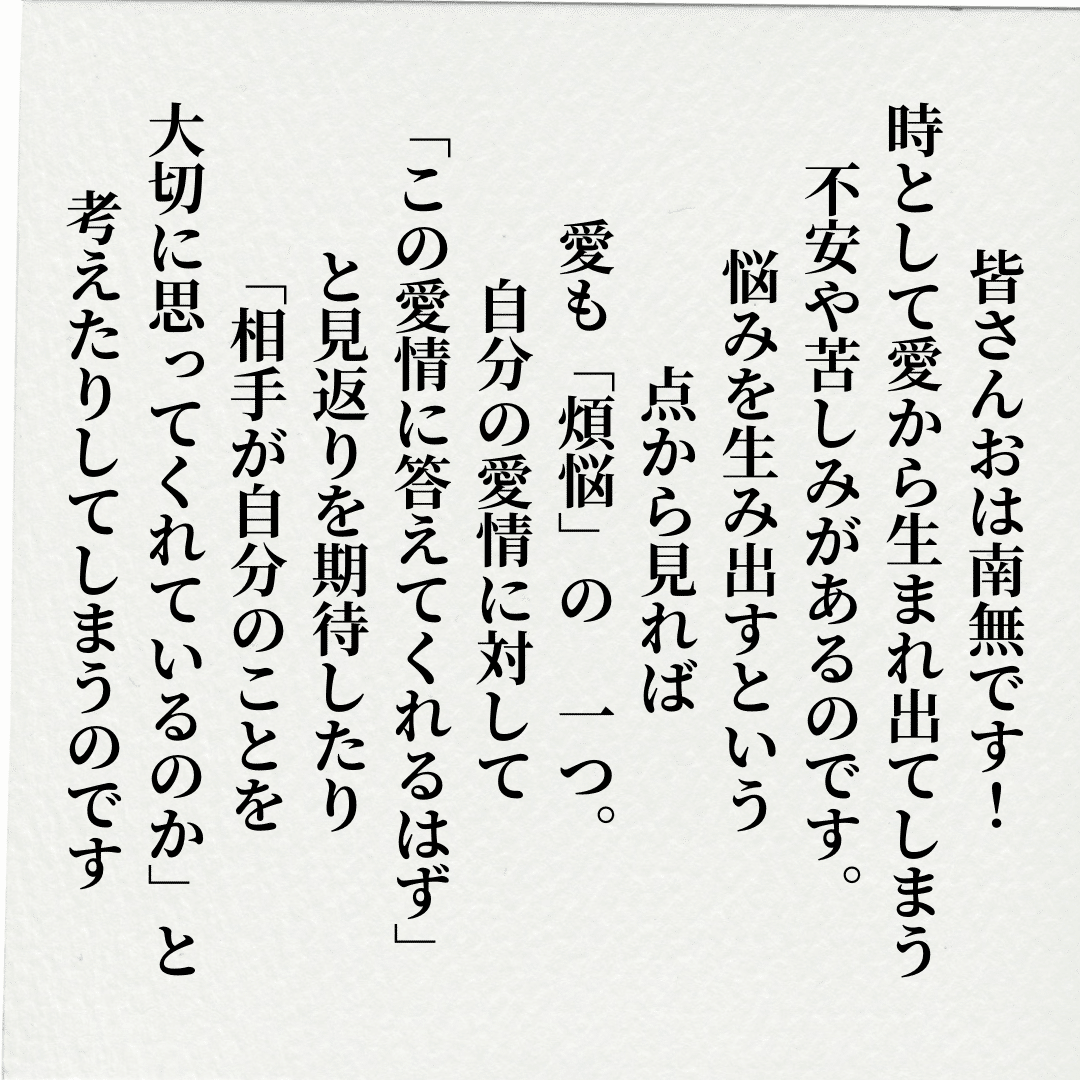 皆さんおは南無です！
時として愛から生まれ出てしまう
不安や苦しみがあるのです。
悩みを生み出すという
点から見れば
愛も「煩悩」の　一つ。
自分の愛情に対して
「この愛情に答えてくれるはず」
と見返りを期待したり
「相手が自分のことを
大切に思ってくれているのか」と
考えたりしてしまうのです